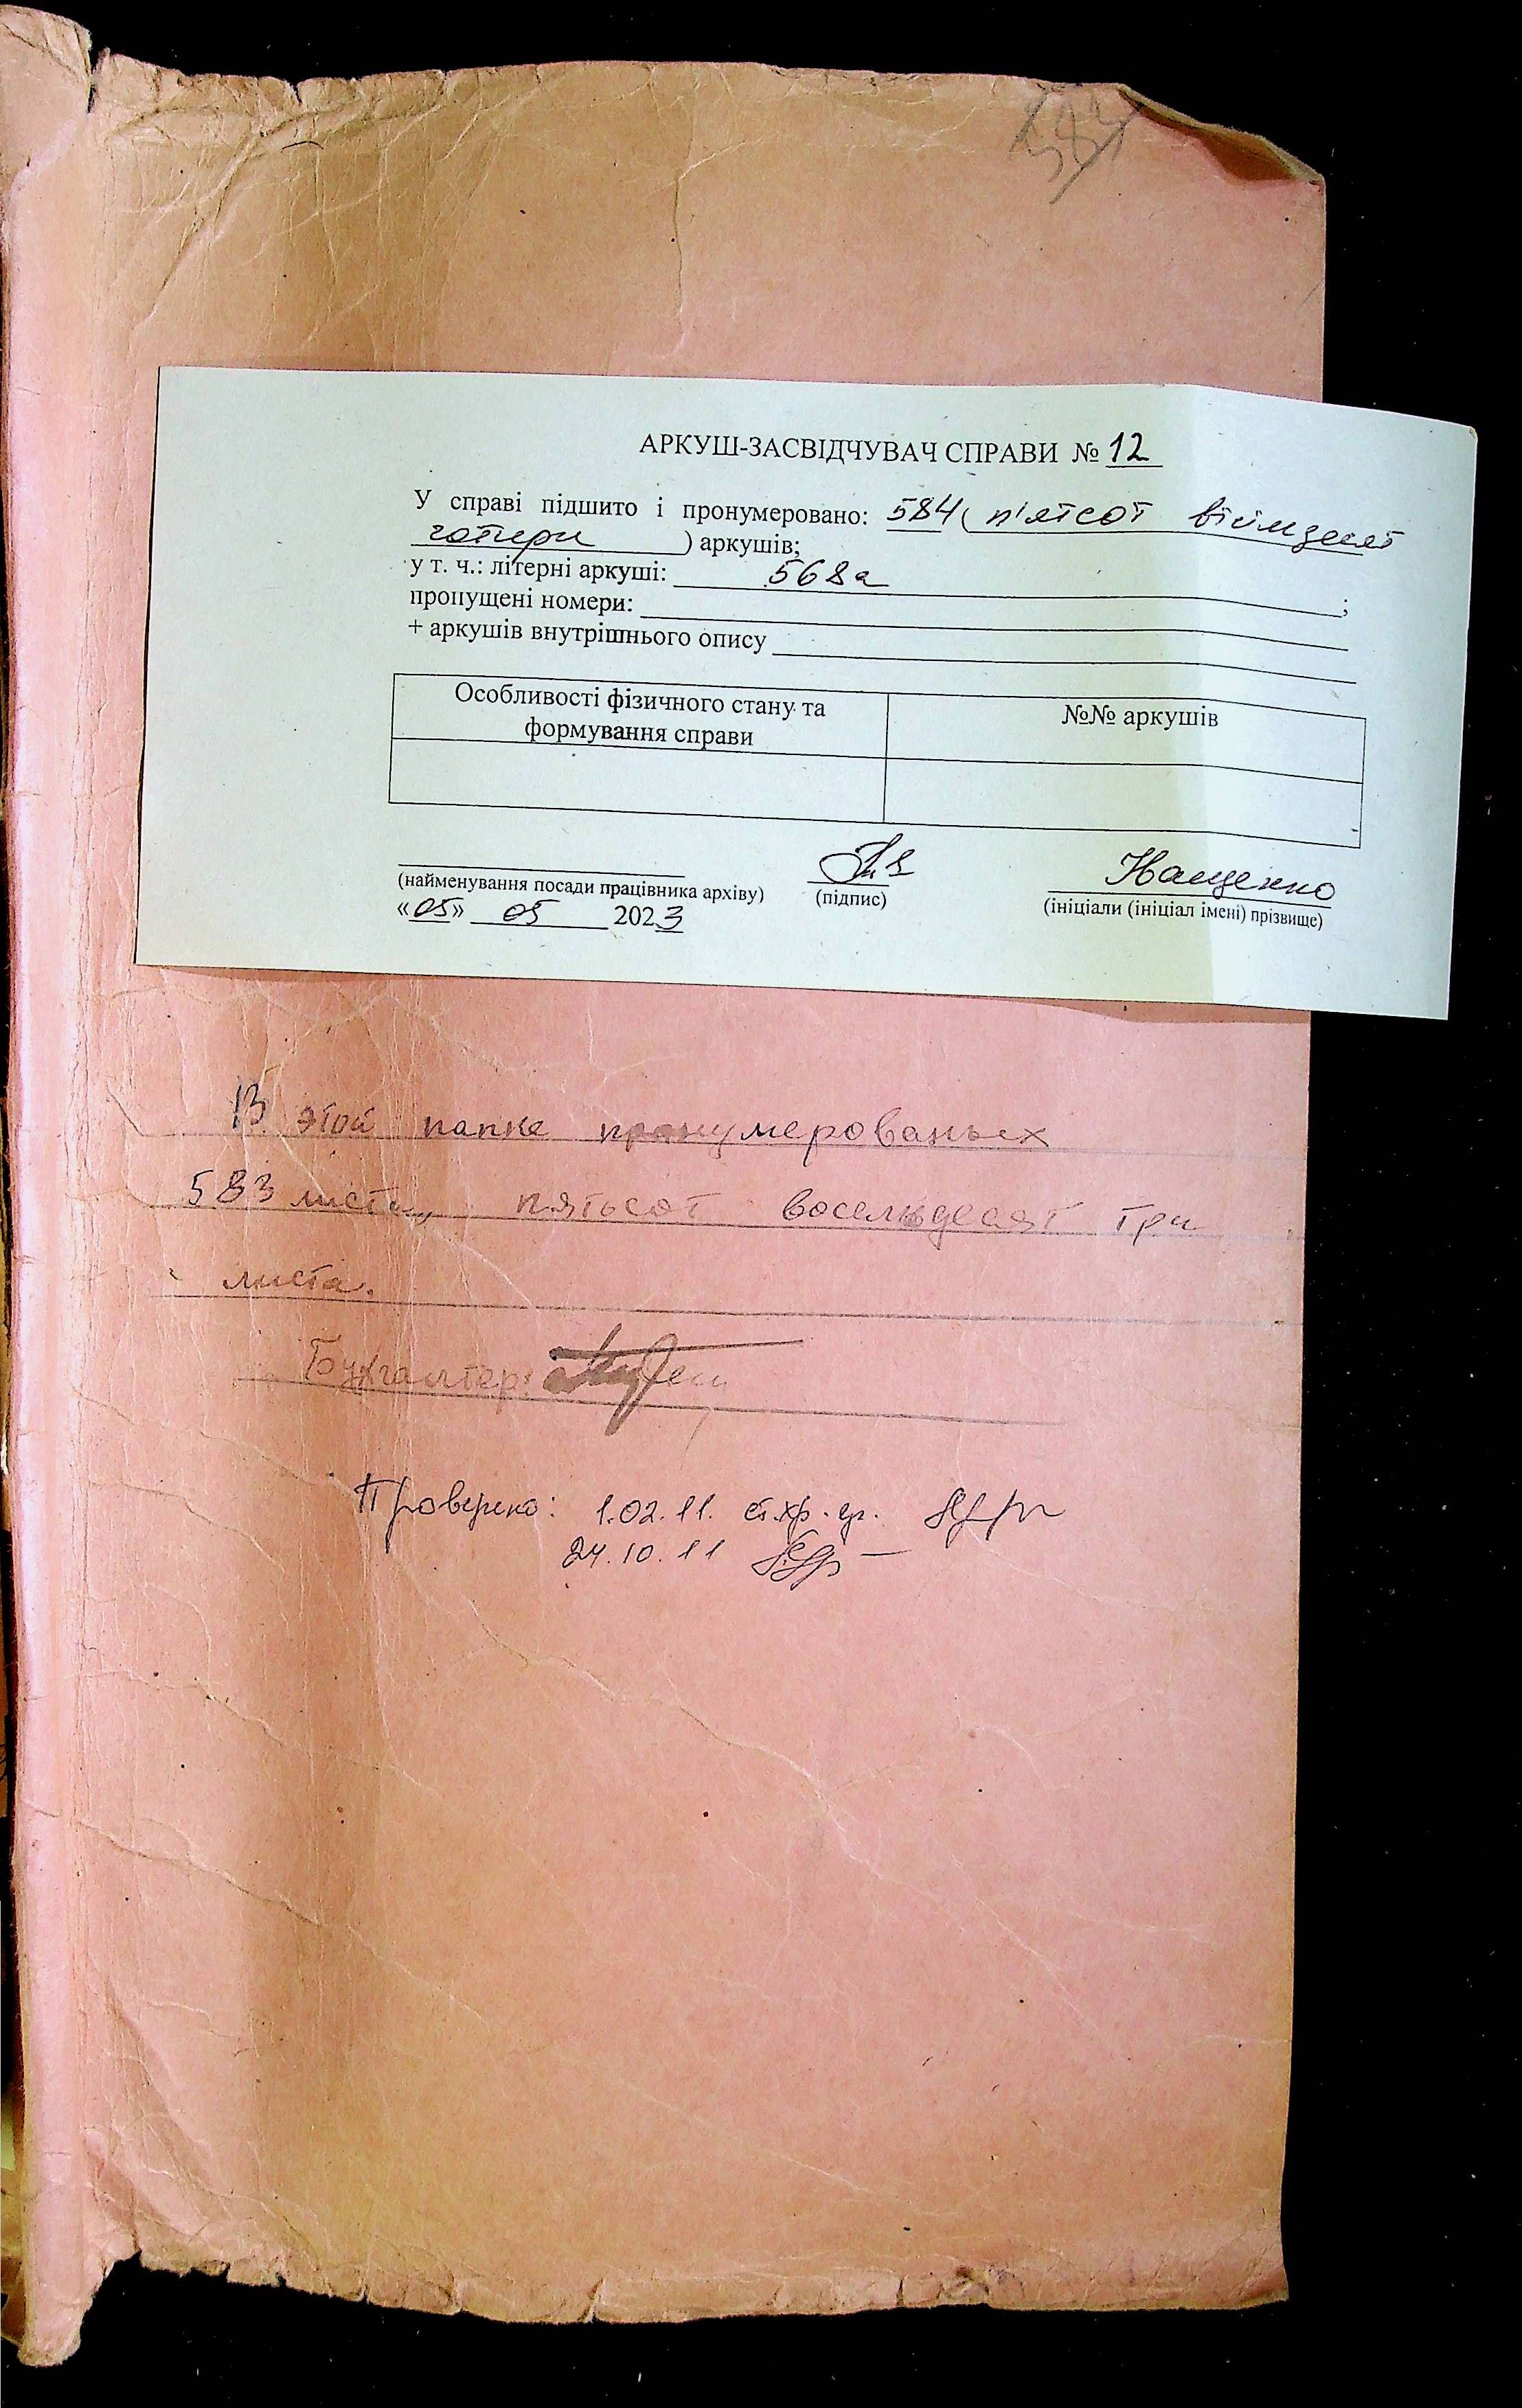 584
АРКУШ-ЗАСВІДЧУВАЧ СПРАВИ № 12
У справі підшито і пронумеровано: 584 ( п'ятсот вісімдесят
чотири ) аркушів;
у т. ч.: літерні аркуші: 568а ;
пропущені номери:
+ аркушів внутрішнього опису
Особливості фізичного стану та
формування справи
№№ аркушів
Нащенко
(найменування посади працівника архіву) (підпис) (ініціали (ініціал імені) прізвище)
«05» 05 2023
В этой папке пронумерованых
583 листа, пятьсот восемьдесят три
листа.
Бухгалтер:
Проверено: 1.02.11. ст.хр.
24.10.11